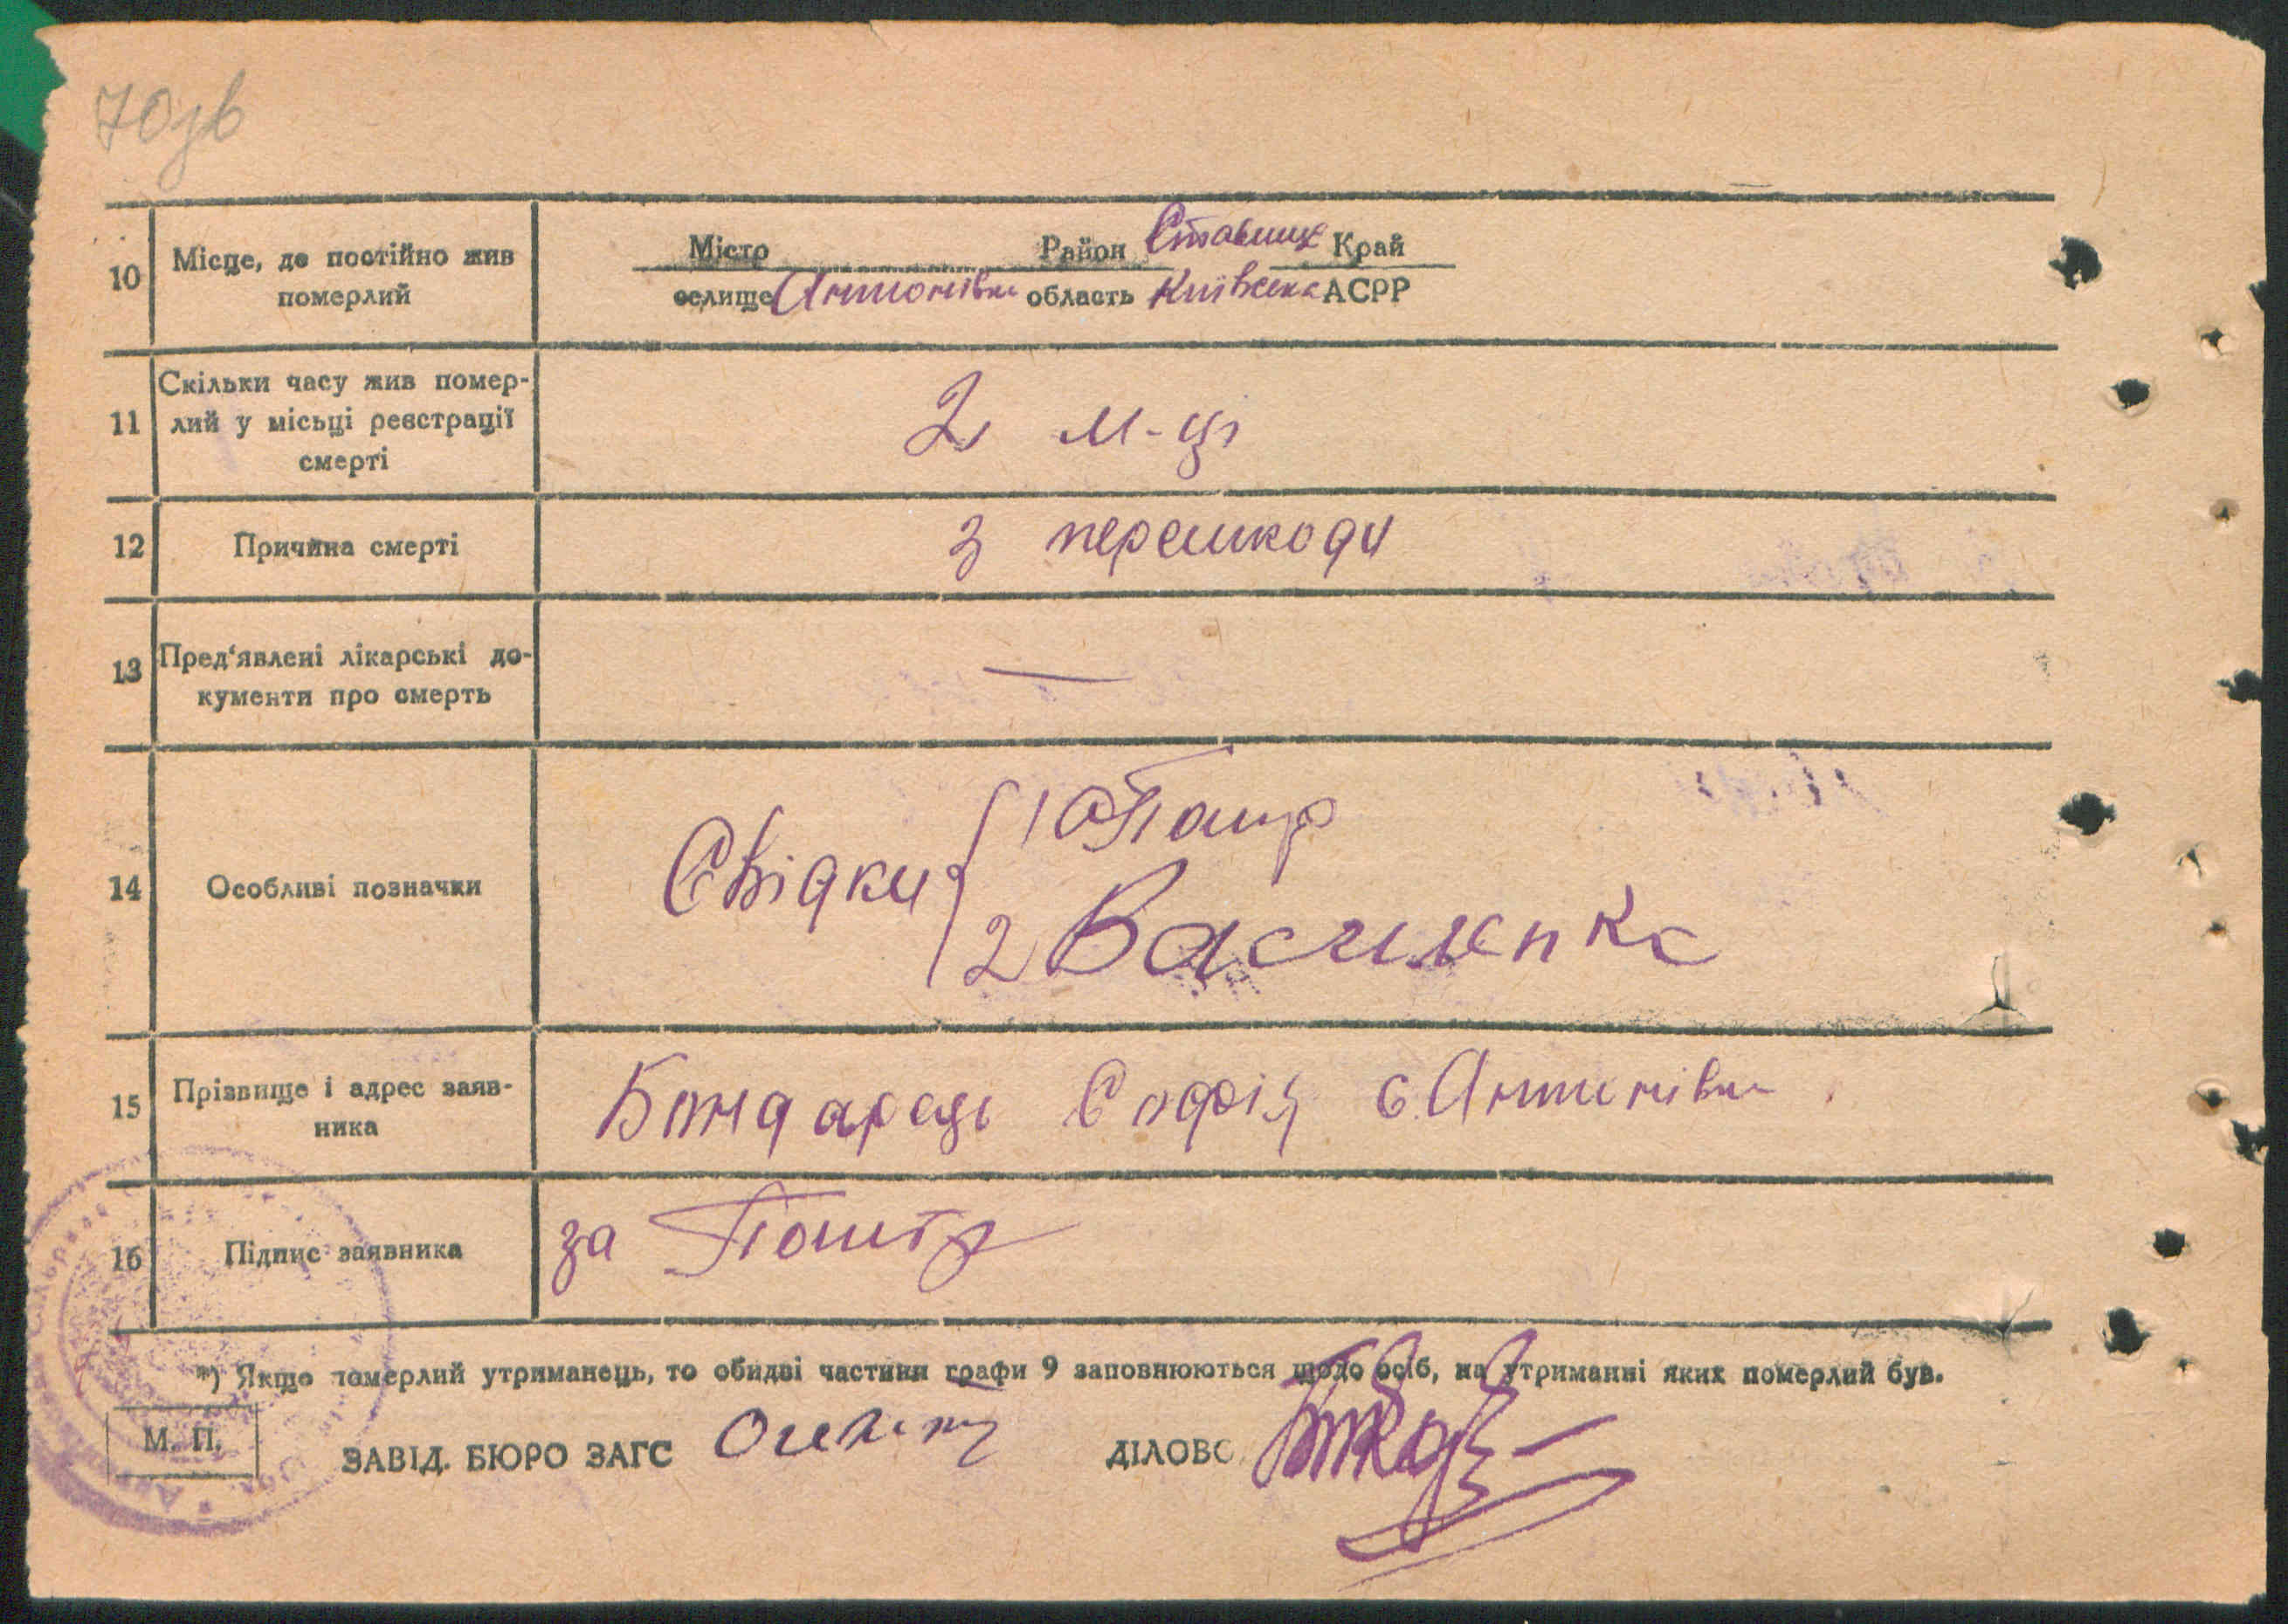 70зв
10 Місце, де постійно жив померлий
Місто Район Ставищ Край
селище Антонівка область Київська АСРР
11 Скільки часу жив помер-
лий у місьці реєстрації
смерті
2 м-ці
12 Причина смерті
з перешкоди
13 Пред'явлені лікарські до-
кументи про смерть
—
14 Особливі позначки
Свідки { 1
2 Василенко
15 Прізвище і адрес заяв-
ника
Бондарець Софія с. Антонівка
16 Підпис заявника
за
*) Якщо померлий утриманець, то обидві частини графи 9 заповнюються щодо осіб, на утриманні яких померлий був.
М. П.
ЗАВІД. БЮРО ЗАГС
ДІЛОВО